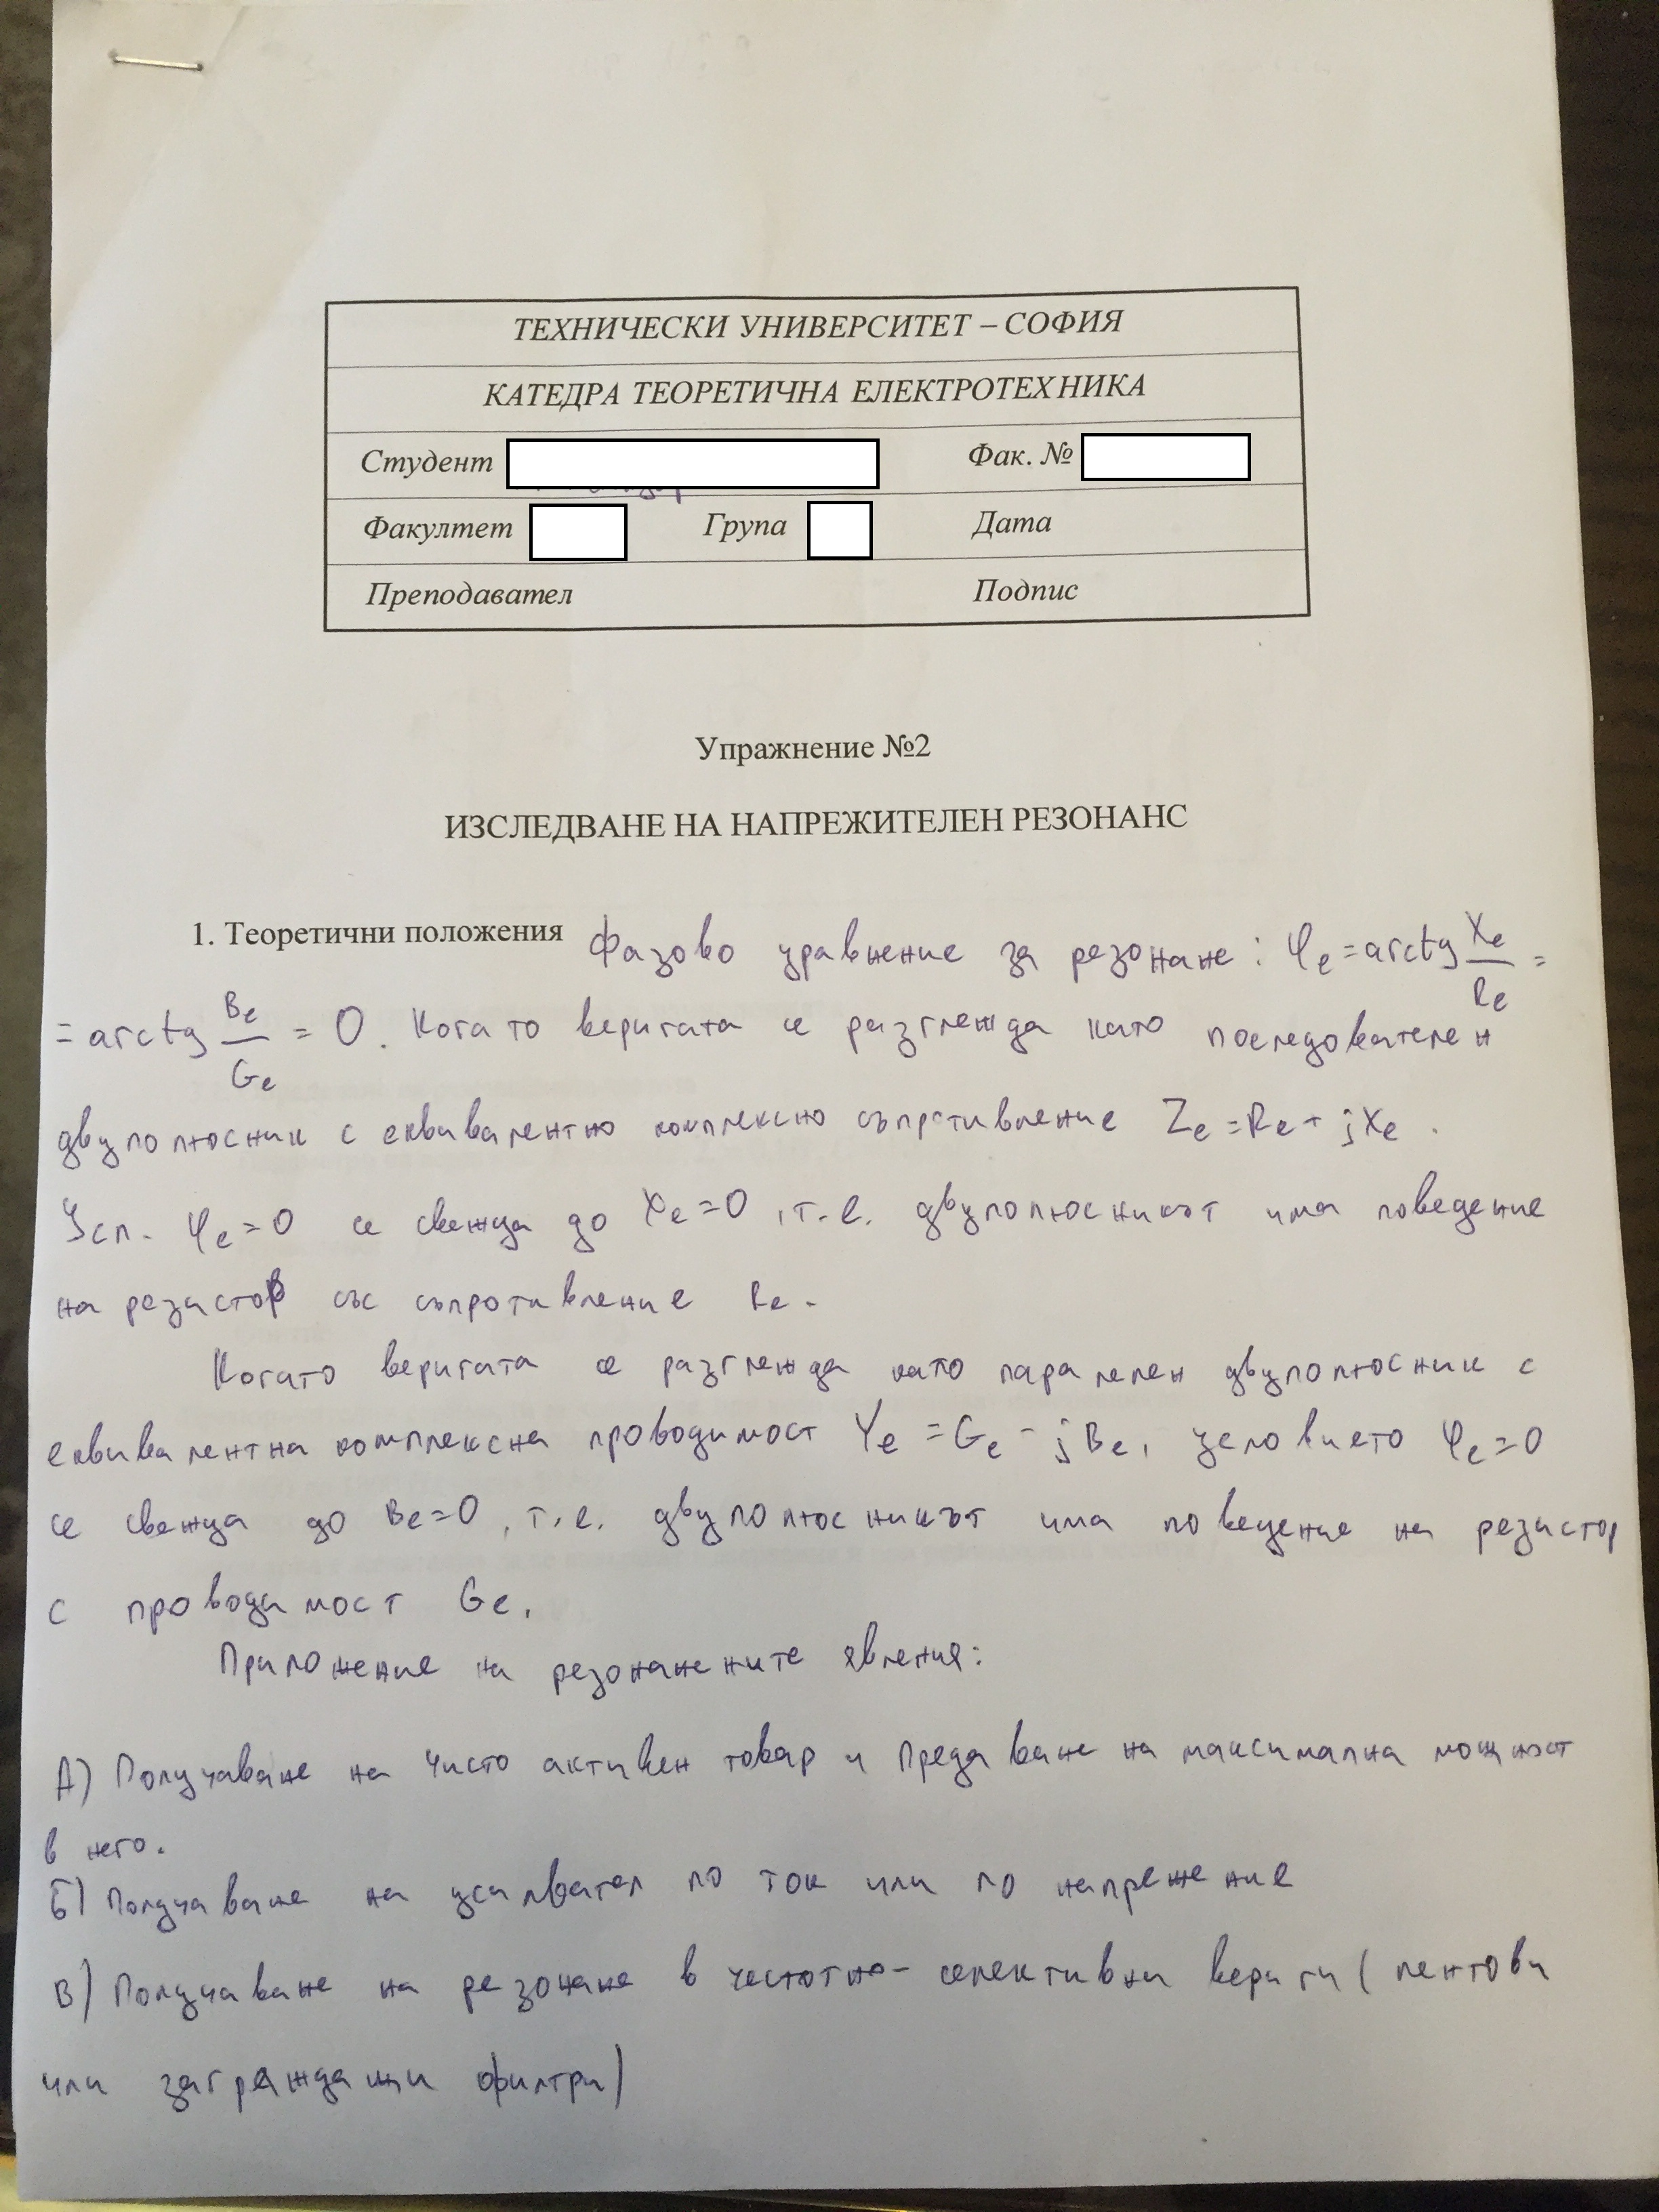 ТЕХНИЧЕСКИ УНИВЕРСИТЕТ – СОФИЯ
КАТЕДРА ТЕОРЕТИЧНА ЕЛЕКТРОТЕХНИКА
Студент Фак. №
Факултет Група Дата
Преподавател Подпис
Упражнение №2
ИЗСЛЕДВАНЕ НА НАПРЕЖИТЕЛЕН РЕЗОНАНС
1. Теоретични положения Фазово уравнение за резонанс: φe = arctg Xe/Re =
= arctg Be/Ge = 0. Когато веригата се разглежда като последователен
двуполюсник с еквивалентно комплексно съпротивление Ze = Re + jXe.
Усл. φe = 0 се свежда до Xe = 0, т.е. двуполюсникът има поведение
на резистор със съпротивление Re.
Когато веригата се разглежда като паралелен двуполюсник с
еквивалентна комплексна проводимост Ye = Ge - jBe, условието φe = 0
се свежда до Be = 0, т.е. двуполюсникът има поведение на резистор
с проводимост Ge.
Приложение на резонансните явления:
А) Получаване на чисто активен товар и предаване на максимална мощност
в него.
Б) Получаване на усилвател по ток или по напрежение
В) Получаване на резонанс в честотно-селективни вериги (лентови
или заграждащи филтри)